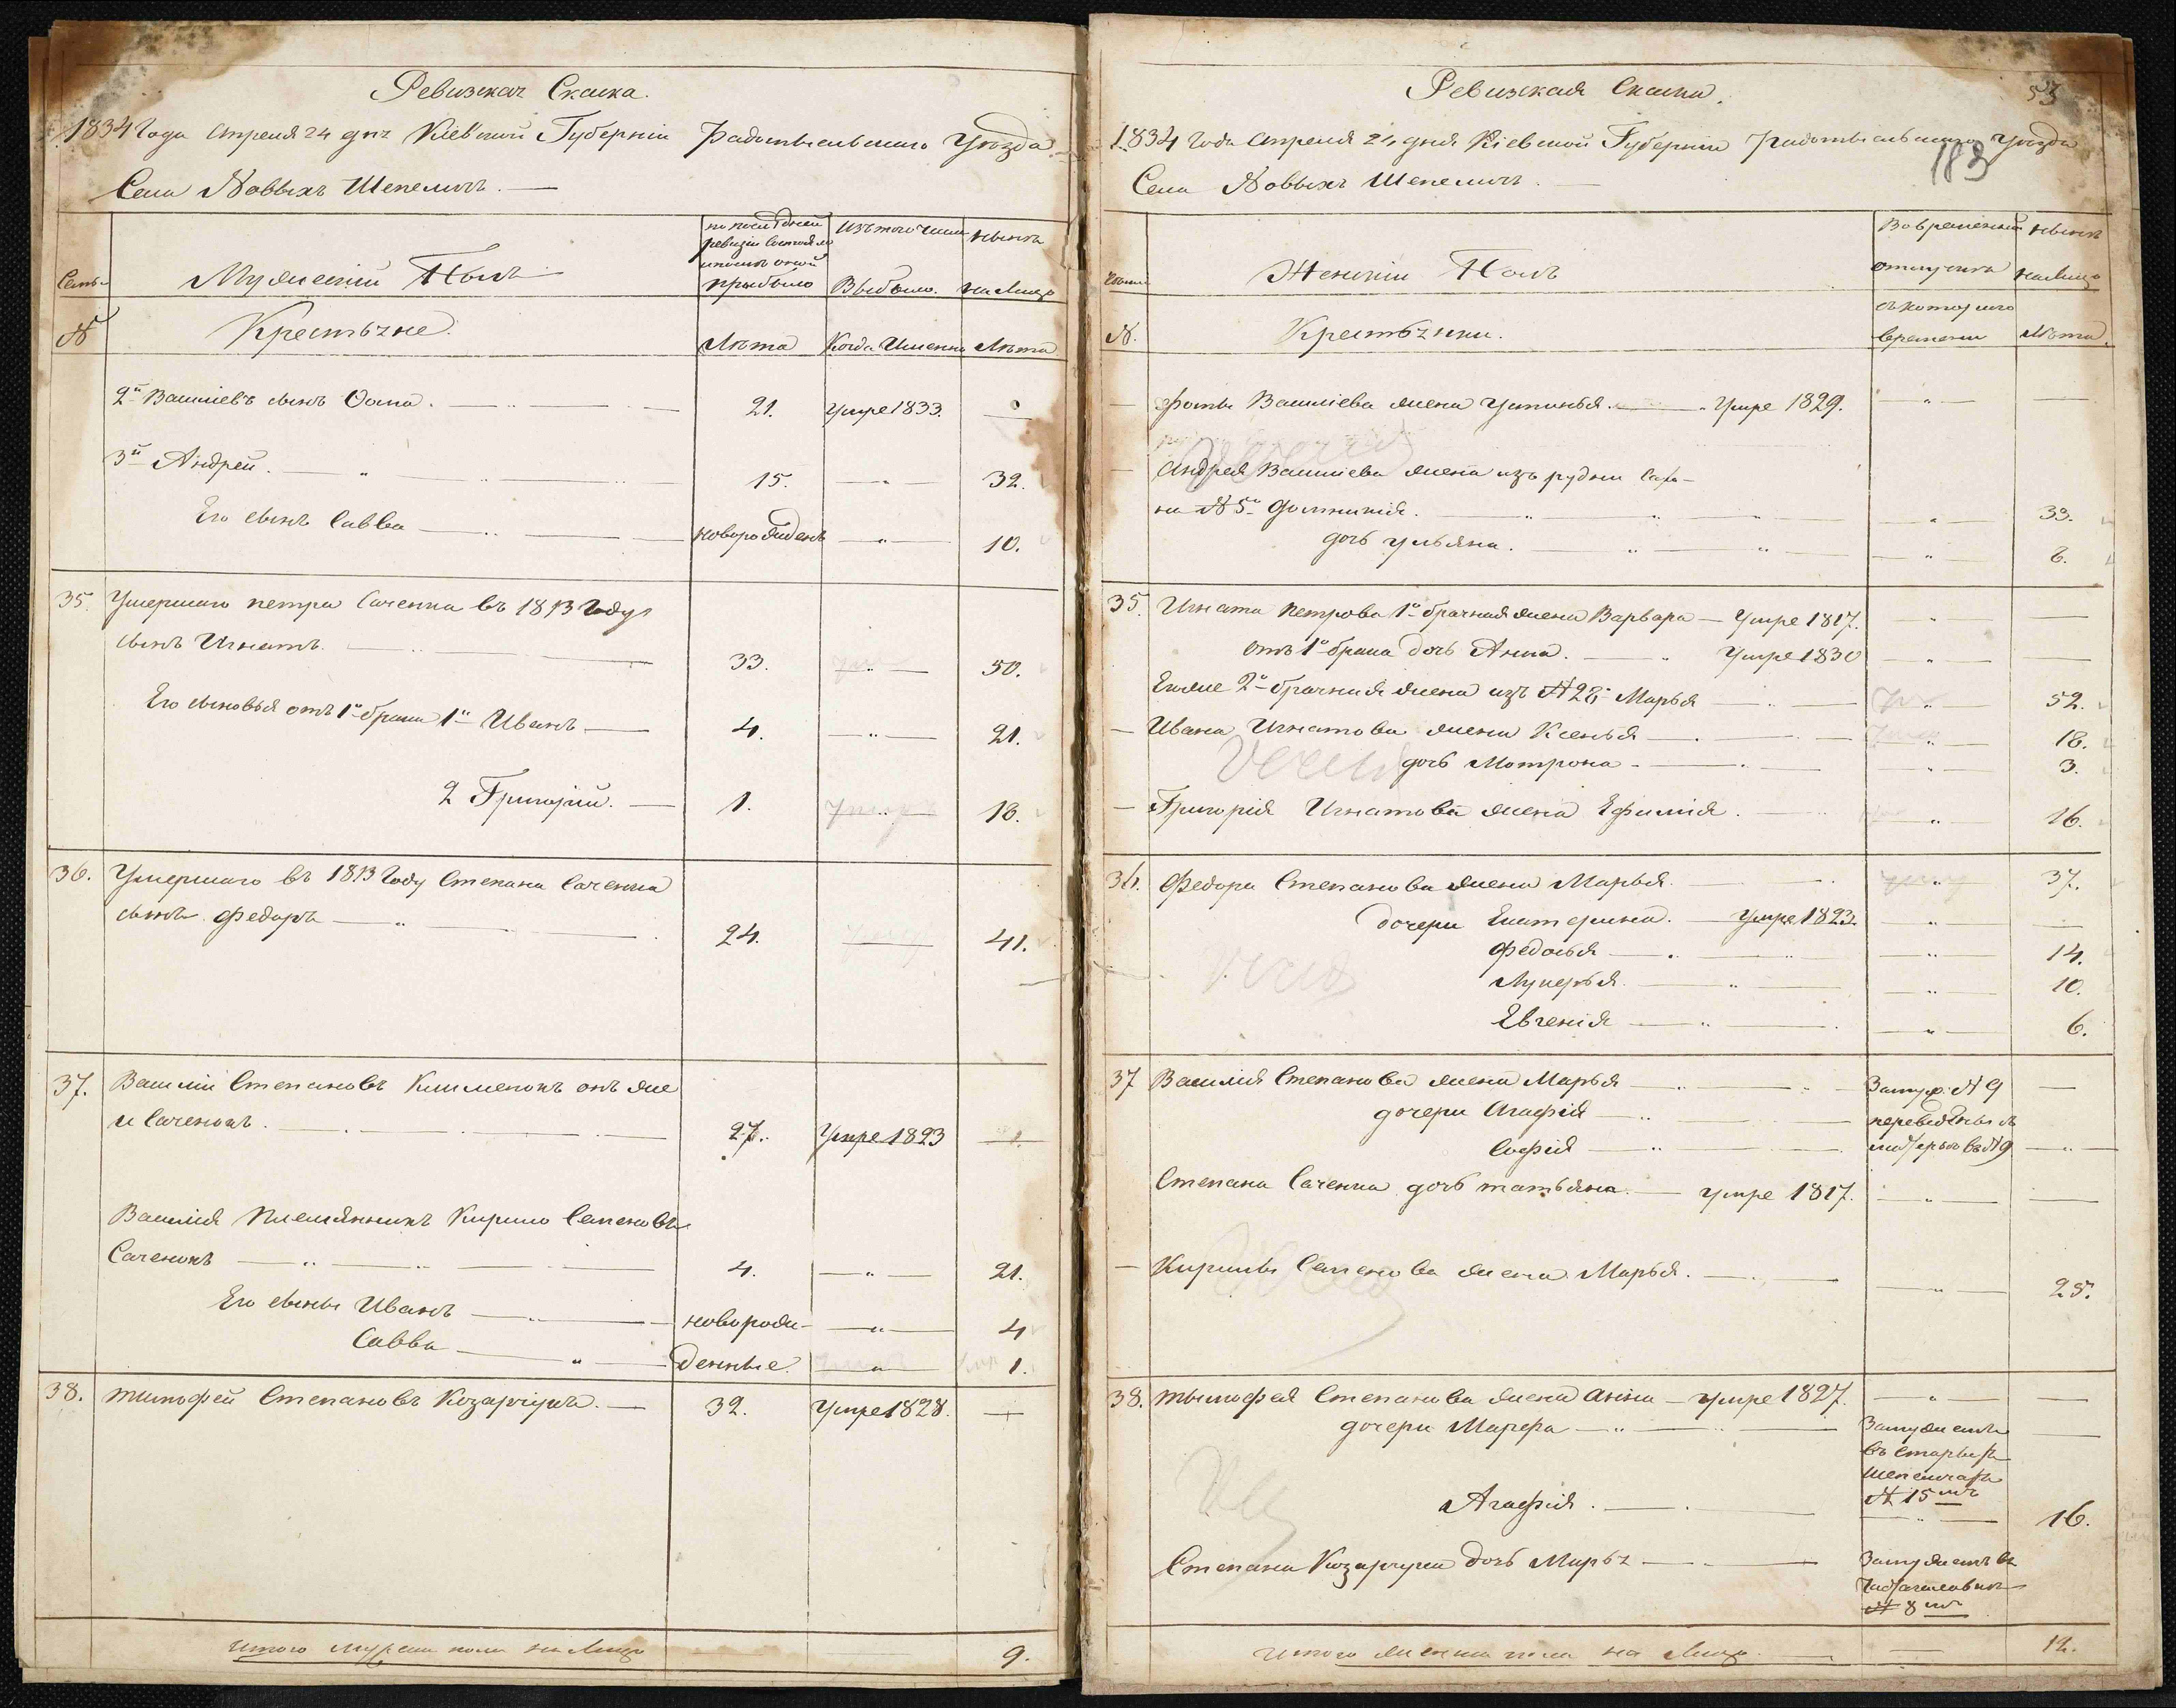 Ревизская Сказка.
1834 Года Апреля 24 дня Кіевской Губерніи Радомысльскаго Уѣзда
Села Новыхъ Шепеличъ.
по послѣдней ревизіи состояло и послѣ оной прибыло
Изъ того числа Выбыло.
нынѣ на лицо
Семьи
Мужескій Полъ
№
Крестьяне.
Лѣта
Когда Именно
Лѣта
2й Василіевъ сынъ Фома. 21. умре 1833.
3й Андрей. 15. 32.
Его сынъ Савва новорожденъ 10.
35. Умершаго петра Саченка въ 1813 Году
сынъ Игнатъ. 33. 50.
Его сыновья отъ 1го брака 1й Иванъ 4. 21.
2 Григорій. 1. 18.
36. Умершаго въ 1813 Году Степана Саченка
сынъ Федоръ 24. 41.
37. Василій Степановъ Клименокъ онъ же
и Саченокъ. 27. Умре 1823
Василія племянникъ Кирило Семеновъ
Саченокъ 4. 21.
Его сыны Иванъ новорож- 4
Савва денные. 1.
38. тимофей Степановъ Козарчукъ. 32. Умре 1828.
Итого мужеска пола на Лицо 9.
Ревизская Сказка.
53
1834 Года Апреля 24 дня Кіевской Губерніи Радомысльскаго Уѣзда
183
Села Новыхъ Шепеличъ.
Семьи
Женскій Полъ
Во временной отлучкѣ
нынѣ на лицо
№.
Крестьянки.
съ котораго времени
Лѣта.
Фомы Василіева жена Устинья. Умре 1829.
Андрея Василіева жена изъ рудни
на № 5. Домникія. 33.
дочь ульяна. 6.
35. Игната Петрова 1о брачная жена Варвара — Умре 1817.
отъ 1о брака дочь Анна. Умре 1830
Егоже 2о брачная жена изъ № 28 Марья 52.
Ивана Игнатова жена Ксенья 18.
дочь Мотрона 3.
Григорія Игнатова жена Ефимія. 16.
36. Федора Степанова жена Марья. 37.
дочери Екатерина. умре 1823.
Федосья 14.
Лукерья. 10.
Евгенія 6.
37 Василія Степанова жена Марья Замуж. № 9
дочери Агафія переведены съ
Софія матерью въ № 9
Степана Саченка дочь татьяна. умре 1817.
Кирилы Семенова жена Марья. 25.
38. тымофея Степанова жена Анна — умре 1827.
дочери Марфа Замужемъ
въ Старыхъ
Шепеличахъ
№ 15
Агафія. 16.
Степана Козарчука дочь Марья Замужемъ въ
№ 8
Итого женска пола на Лицо. 12.